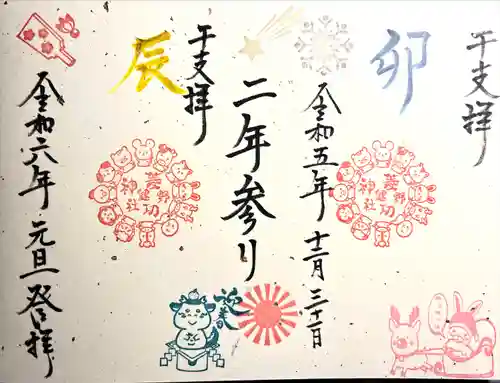 干支拝
卯
令和五年 十二月 三十一日
二年参り
干支拝
辰
令和六年 元旦 登拝
芸能
建功
神社
芸能
建功
神社
迎春